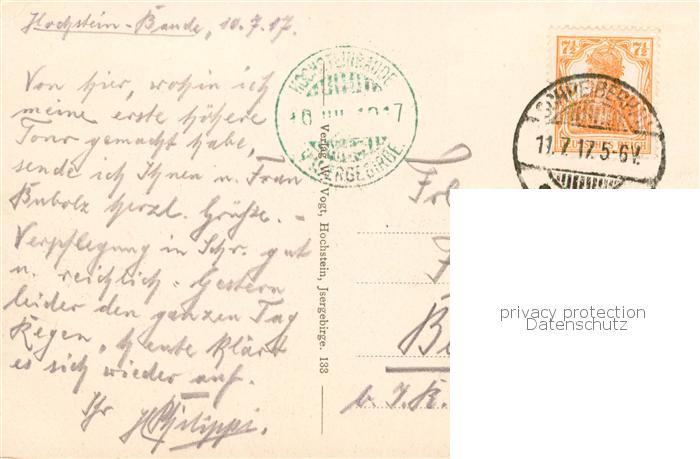 Hochstein-Baude, 10.7.17.
Von hier, wohin ich
meine erste höhere
Tour gemacht habe,
sende ich Ihnen u. Frau
Bubolz herzl. Grüße. -
Verpflegung in Schr. gut
u. reichlich. Gestern
leider den ganzen Tag
Regen, heute klärt
es sich wieder auf.
Ihr HPhilippi.
HOCHSTEINBAUDE
ISERGEBIRGE
Verlag W. Vogt, Hochstein, Jsergebirge. 133
7½ 7½
SCHREIBERHAU
11.7.17.5-6V.
privacy protection
Datenschutz